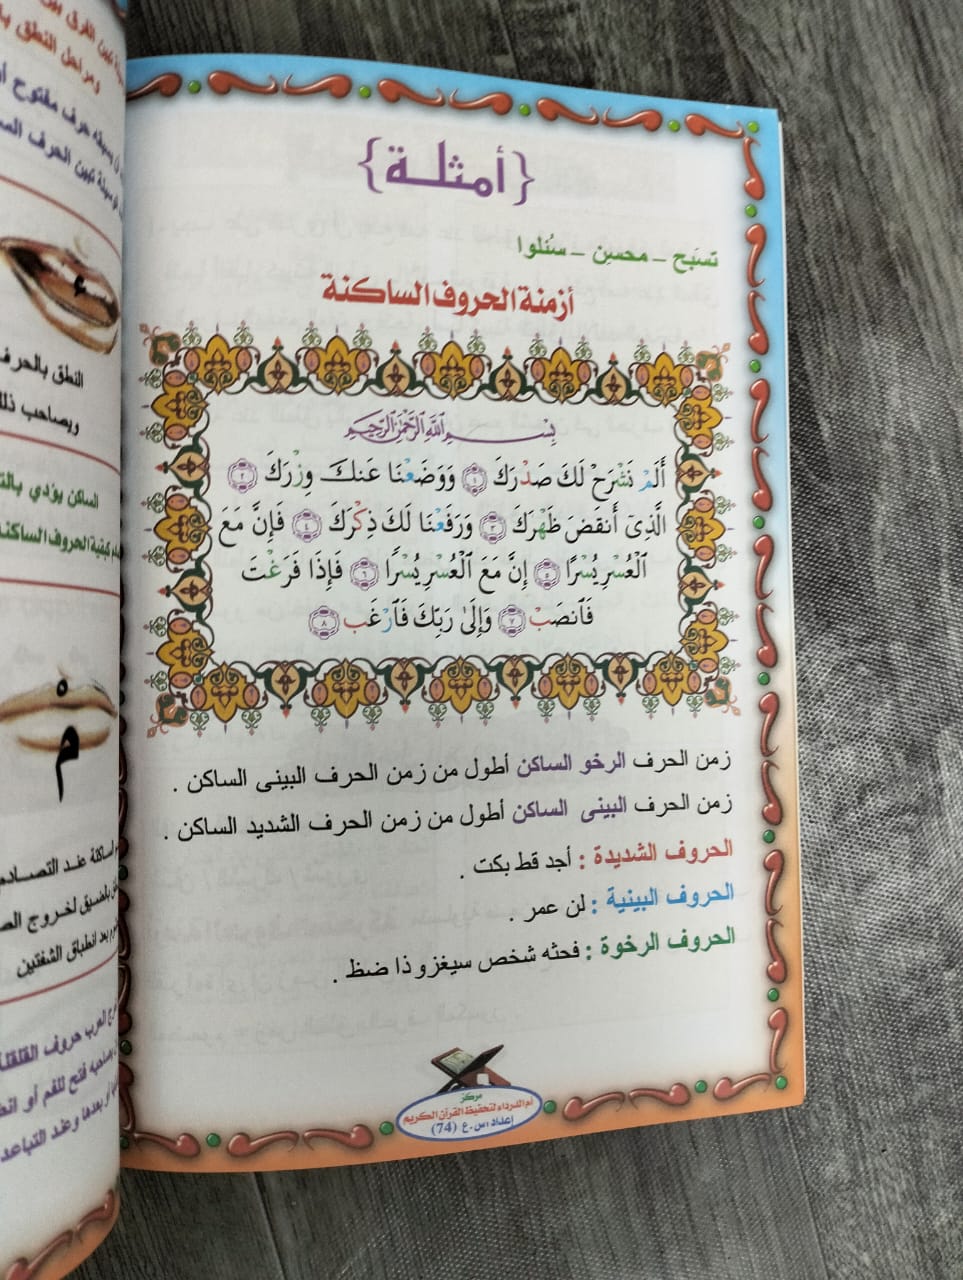 {أمثلة}
تسبَح - محسِن - سنلوا
أزمنة الحروف الساكنة
بِسْمِ ٱللَّهِ ٱلرَّحْمَٰنِ ٱلرَّحِيمِ
أَلَمْ نَشْرَحْ لَكَ صَدْرَكَ ۝١ وَوَضَعْنَا عَنكَ وِزْرَكَ ۝٢
ٱلَّذِىٓ أَنقَضَ ظَهْرَكَ ۝٣ وَرَفَعْنَا لَكَ ذِكْرَكَ ۝٤ فَإِنَّ مَعَ
ٱلْعُسْرِ يُسْرًا ۝٥ إِنَّ مَعَ ٱلْعُسْرِ يُسْرًا ۝٦ فَإِذَا فَرَغْتَ
فَٱنصَبْ ۝٧ وَإِلَىٰ رَبِّكَ فَٱرْغَب ۝٨
زمن الحرف الرخو الساكن أطول من زمن الحرف البينى الساكن .
زمن الحرف البينى الساكن أطول من زمن الحرف الشديد الساكن .
الحروف الشديدة : أجد قط بكت .
الحروف البينية : لن عمر .
الحروف الرخوة : فحثه شخص سيغزو ذا ضظ .
مركز
أم الدرداء لتحفيظ القرآن الكريم
إعداد أ/س.ع (74)
ومراحل النطق
حرف مفتوح
تبين الحرف
ء
النطق بالحرف
ويصاحب ذلك
الساكن يؤدي
كيفية الحروف الساكنة
مْ
الساكنة عند التصادم
لخروج
بعد انطباق الشفتين
العرب حروف القلقلة
فتح للفم أو
أو بعدها وعند التباعد